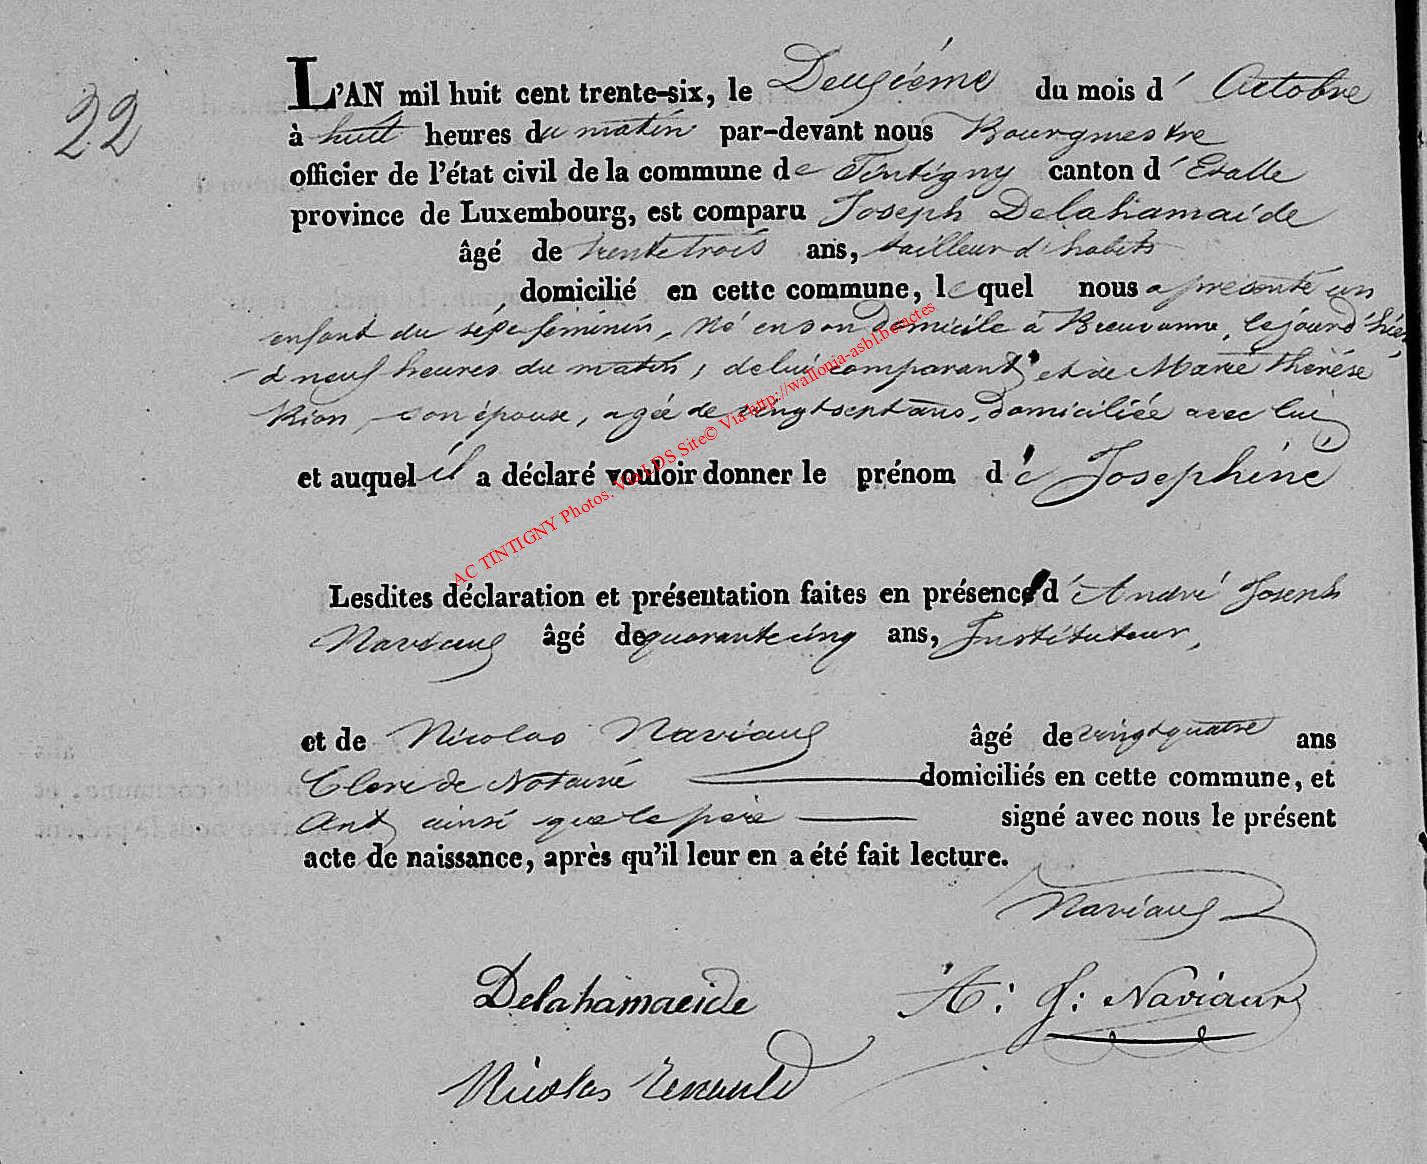 22
L'AN mil huit cent trente-six, le Deuxième du mois d' Octobre
à huit heures du matin par-devant nous Bourgmestre
officier de l'état civil de la commune de Tintigny canton d' Etalle
province de Luxembourg, est comparu Joseph Delahamaide
âgé de trente trois ans, tailleur d'habits
domicilié en cette commune, lequel nous a présenté un
enfant du sexe féminin, né en son domicile à Breuvanne, le jour d'hier,
à neuf heures du matin, de lui comparant et de Marie Thérèse
Rion, son épouse, agée de vingt sept ans, domiciliée avec lui
et auquel il a déclaré vouloir donner le prénom de Josephine
Lesdites déclaration et présentation faites en présence d' André Joseph
Naviaux âgé de quarante cinq ans, Instituteur,
et de Nicolas Naviaux âgé de vingt quatre ans
Clerc de Notaire domiciliés en cette commune, et
Ont ainsi que le père signé avec nous le présent
acte de naissance, après qu'il leur en a été fait lecture.
Naviaux
Delahamaeide A: J: Naviaux
Nicolas
AC TINTIGNY Photos. Via LDS Site© Via http://wallonia-asbl.be/actes